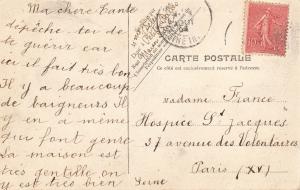 Ma chère Tante
dépêche-toi de
te guérir car
ici il fait très bon
Il y a beaucoup
de baigneurs Il
y en a même
qui font genre
La maison est
très gentille on
y est très bien
CARTE POSTALE
Ce côté est exclusivement réservé à l'adresse.
Madame France
Hospice St Jacques
37 avenue des Volontaires
Paris (XV)
Seine